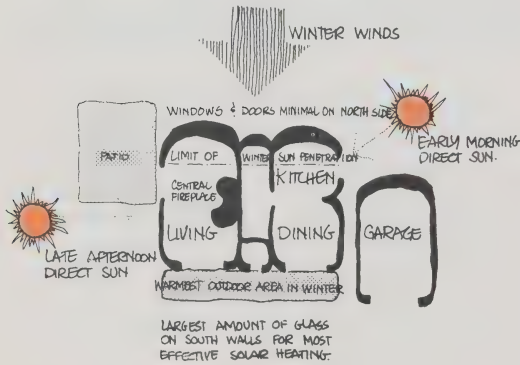 WINTER WINDS
WINDOWS & DOORS MINIMAL ON NORTH SIDE
EARLY MORNING
DIRECT SUN.
PATIO
LIMIT OF WINTER SUN PENETRATION
KITCHEN
CENTRAL
FIREPLACE
LIVING
DINING
GARAGE
LATE AFTERNOON
DIRECT SUN
WARMEST OUTDOOR AREA IN WINTER
LARGEST AMOUNT OF GLASS
ON SOUTH WALLS FOR MOST
EFFECTIVE SOLAR HEATING.